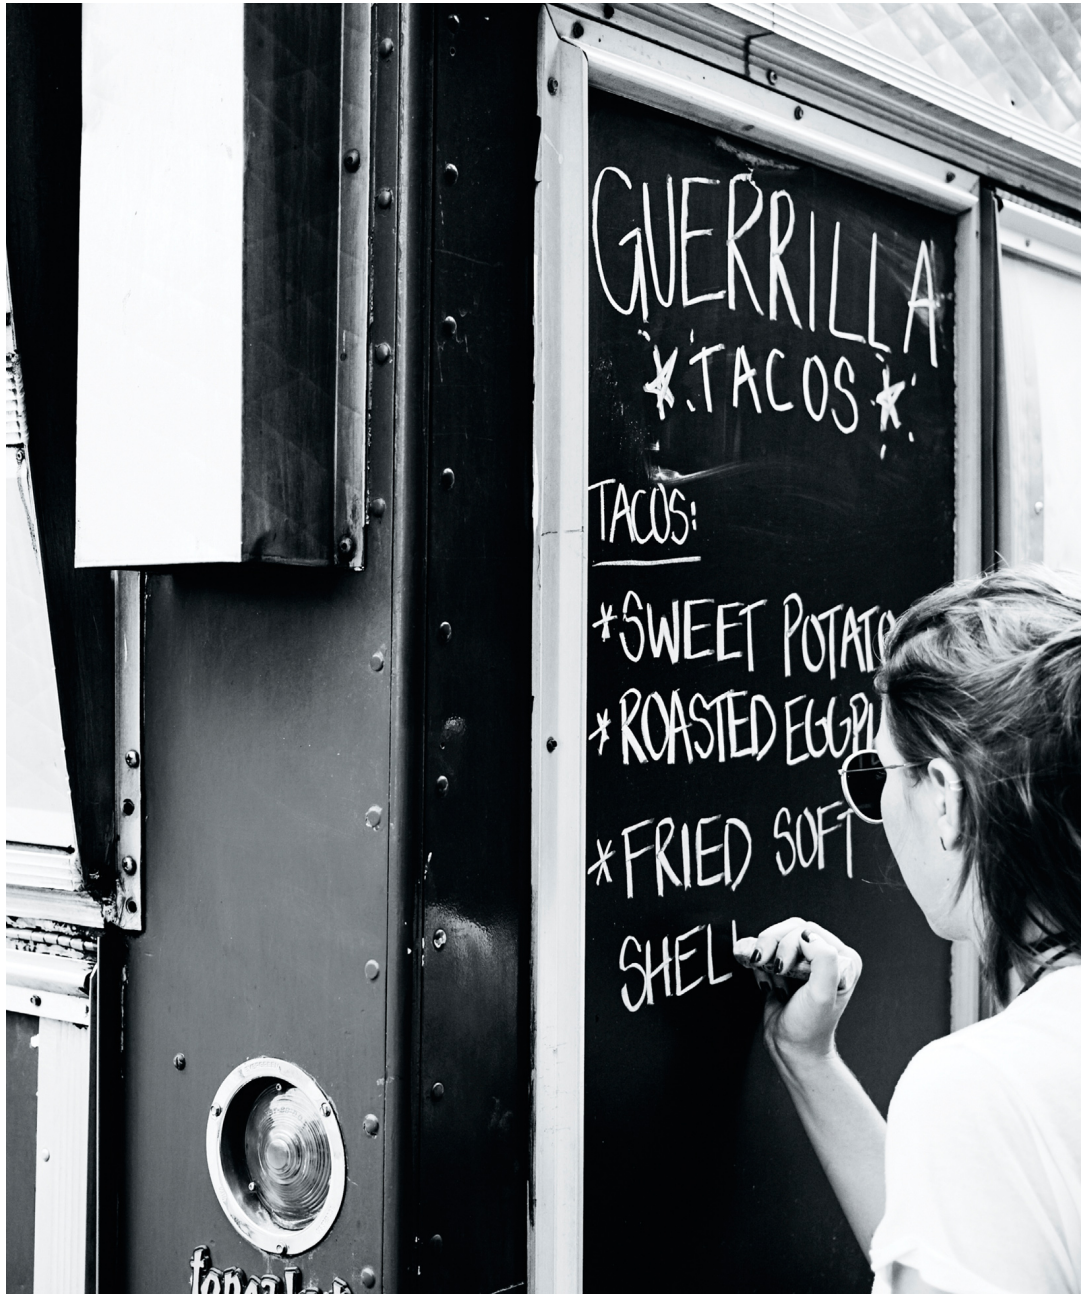 GUERRILLA
*TACOS*
TACOS:
*SWEET POTATO
*ROASTED EGGPL
*FRIED SOFT
SHELL